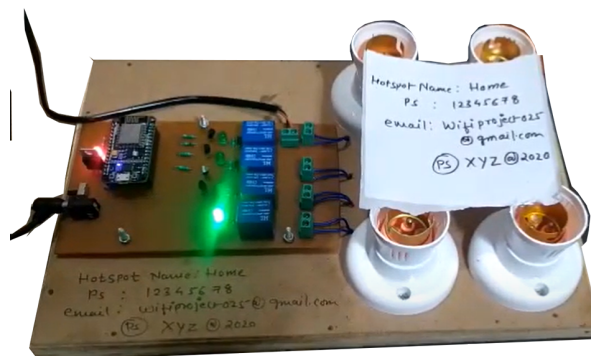 Hotspot Name: Home
Ps : 12345678
email: Wifiproject025
@gmail.com
Ps XYZ@2020
Hotspot Name: Home
Ps : 12345678
email: wifiproject025@gmail.com
Ps XYZ@2020